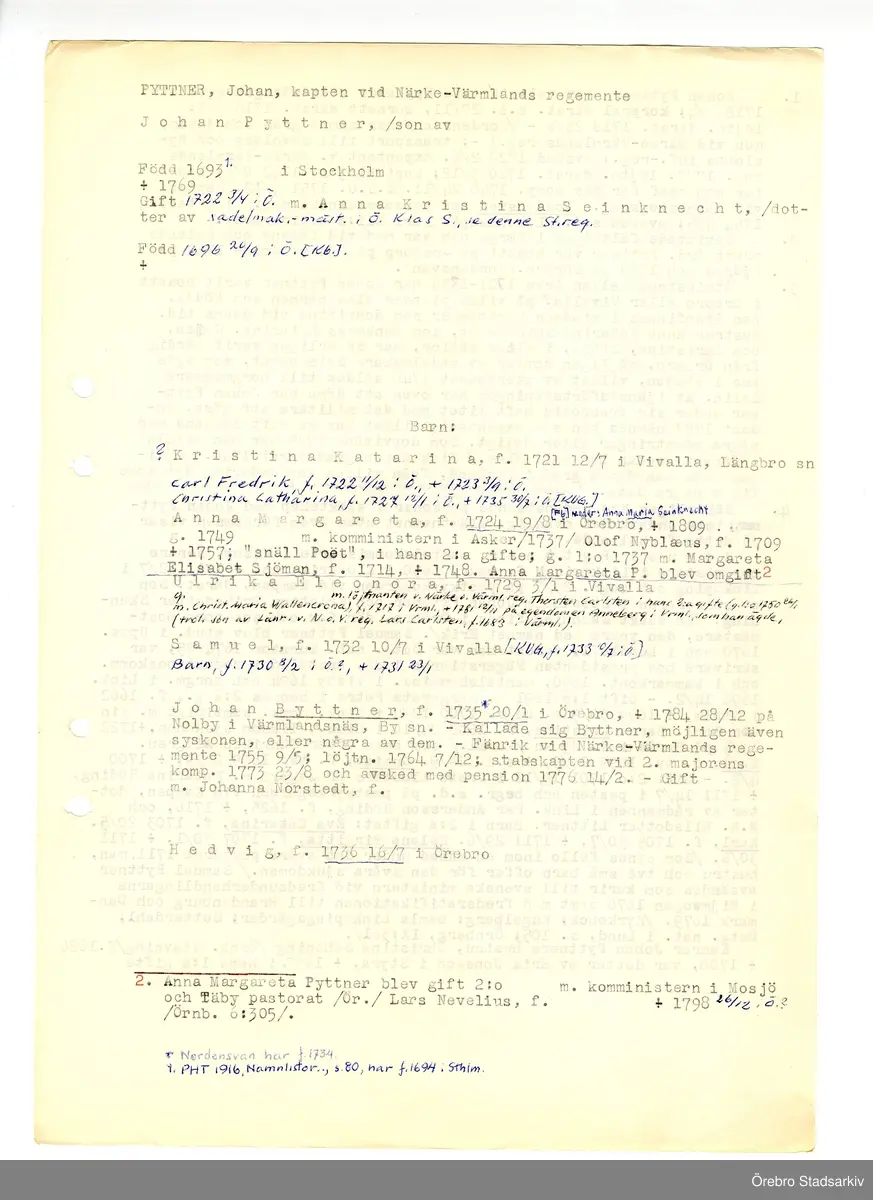 PYTTNER, Johan, kapten vid Närke-Värmlands regemente
Johan Pyttner, /son av
Född 1693 1. i Stockholm
+ 1769
Gift 1722 3/4 i Ö. m. Anna Kristina Seinknecht, /dot-
ter av sadelmak.-mäst. i Ö. Klas S., se denne St.reg.
Född 1696 26/9 i Ö. [Kb].
+
Barn:
? Kristina Katarina, f. 1721 12/7 i Vivalla, Längbro sn
Carl Fredrik, f. 1722 11/12 i Ö., + 1723 3/9 i Ö.
Christina Catharina, f. 1727 12/1 i Ö., + 1735 30/7 i Ö. [KVG.]
[Fb] moder: Anna Maria Seinknecht
Anna Margareta, f. 1724 19/8 i Örebro, + 1809 .
g. 1749 m. komministern i Asker/1737/ Olof Nyblæus, f. 1709
+ 1757; "snäll Poët", i hans 2:a gifte; g. 1:o 1737 m. Margareta
Elisabet Sjöman, f. 1714, + 1748. Anna Margareta P. blev omgift 2
Ulrika Eleonora, f. 1729 3/1 i Vivalla
g. m. löjtnanten v. Närke o. Värml. reg. Thorsten Carlsten i hans 2:a gifte (g. 1:o 1750
m. Christ. Maria Wallencrona), f. 1717 i Vrml, + 1781 12/11 på egendomen Anneberg i Vrml, som han ägde,
(trol. son av fänr. v. N. o. V. reg. Lars Carlsten, f. 1683 i Värml.).
Samuel, f. 1732 10/7 i Vivalla [KVG, f. 1733 10/7 i Ö.]
Barn, f. 1730 3/2 i Ö.?, + 1731 23/1
Johan Byttner, f. 1735* 20/1 i Örebro, + 1784 28/12 på
Nolby i Värmlandsnäs, By sn. - Kallade sig Byttner, möjligen även
syskonen, eller några av dem. - Fänrik vid Närke-Värmlands rege-
mente 1755 9/5; löjtn. 1764 7/12; stabskapten vid 2. majorens
komp. 1773 23/8 och avsked med pension 1776 14/2. - Gift
m. Johanna Norstedt, f.
Hedvig, f. 1736 16/7 i Örebro
2. Anna Margareta Pyttner blev gift 2:o m. komministern i Mosjö
och Täby pastorat /Ör./ Lars Nevelius, f. + 1798 26/12 i Ö.?
/Örnb. 6:305/.
* Nordensvan har f. 1734.
1. PHT 1916, Namnlistor.., s. 80, har f. 1694 i Sthlm.
Örebro Stadsarkiv